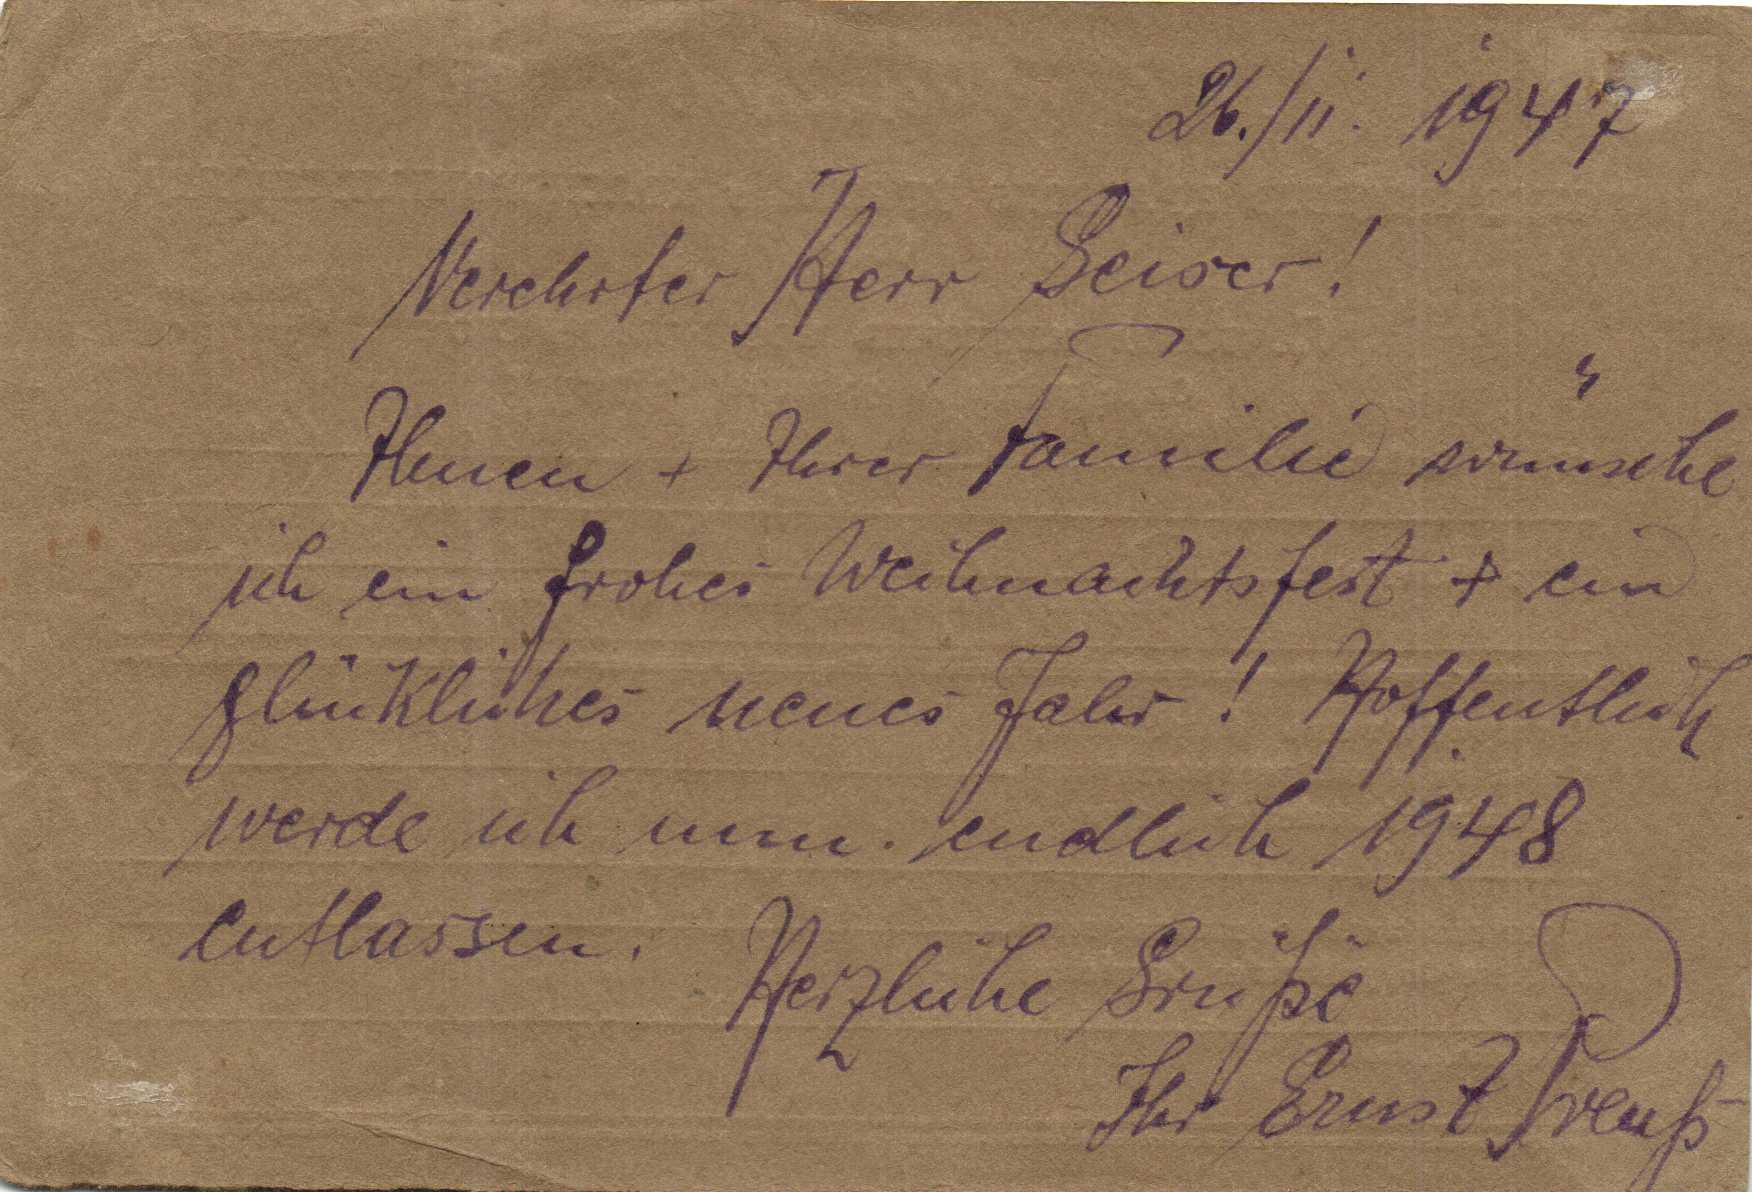 26./11. 1947
Verehrter Herr Geiser!
Ihnen + Ihrer Familie wünsche
ich ein frohes Weihnachtsfest + ein
glückliches neues Jahr! Hoffentlich
werde ich nun. endlich 1948
entlassen.
Herzliche Grüße
Ihr Ernst Preuß